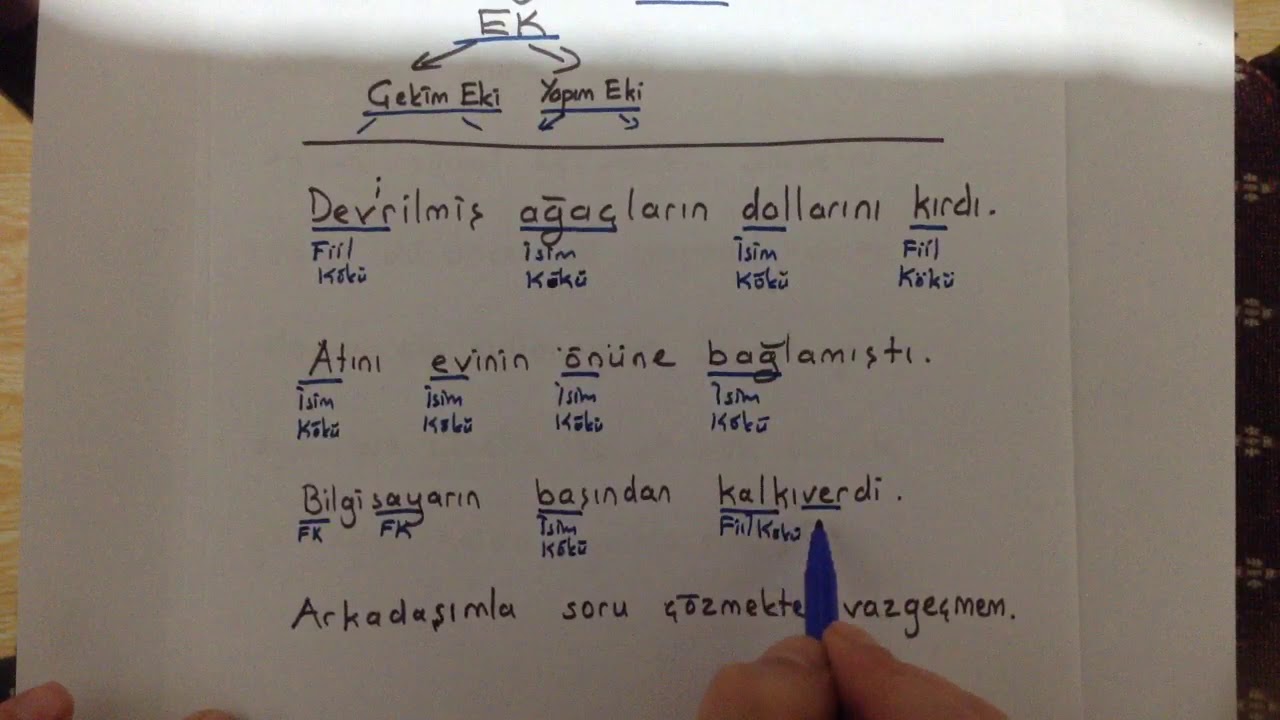 EK
Çekim Eki Yapım Eki
Devrilmiş ağaçların dallarını kırdı.
Fiil İsim İsim Fiil
Kökü Kökü Kökü Kökü
Atını evinin önüne bağlamıştı.
İsim İsim İsim İsim
Kökü Kökü Kökü Kökü
Bilgisayarın başından kalkıverdi.
FK FK İsim Fiil Kökü
Kökü
Arkadaşımla soru çözmekte vazgeçmem.